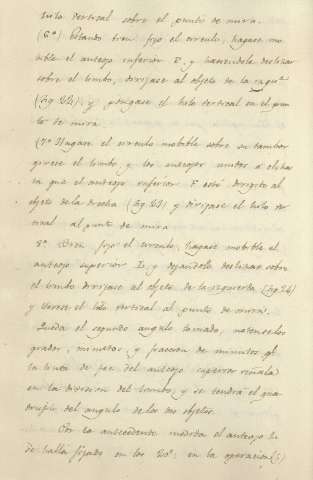 hilo vertical sobre el punto de mira.
(6º) Estando bien fijo el circulo, hagase mo-
bible el anteojo inferior F. y haciendole deslizar
sobre el limbo, dirijase al objeto de la izquª
(fig 24) y pongase el hilo vertical en el pun
to de mira
(7º Hagase el circulo mobible sobre su tambor
girese el limbo y los anteojos unidos a el has
ta que el anteojo inferior F esté dirigido al
objeto de la drecha (fig 24) y dirijase el hilo ver
tical al punto de mira
8º Bien fijo el circulo, hagase mobible el
anteojo superior L, y dejandole deslizar sobre
el limbo dirijase al objeto de la izquierda (fig 24)
y llevese el hilo vertical al punto de mira.
Queda el segundo angulo tomado, notense los
grados, minutos y fraccion de minutos qº
la linea de fee del anteojo superior señala
en la division del limbo, y se tendrá el qua
druplo del angulo de los dos objetos.
Por la antecedente medida el anteojo L
se halla fijado en los 20º; en la operacion (5)